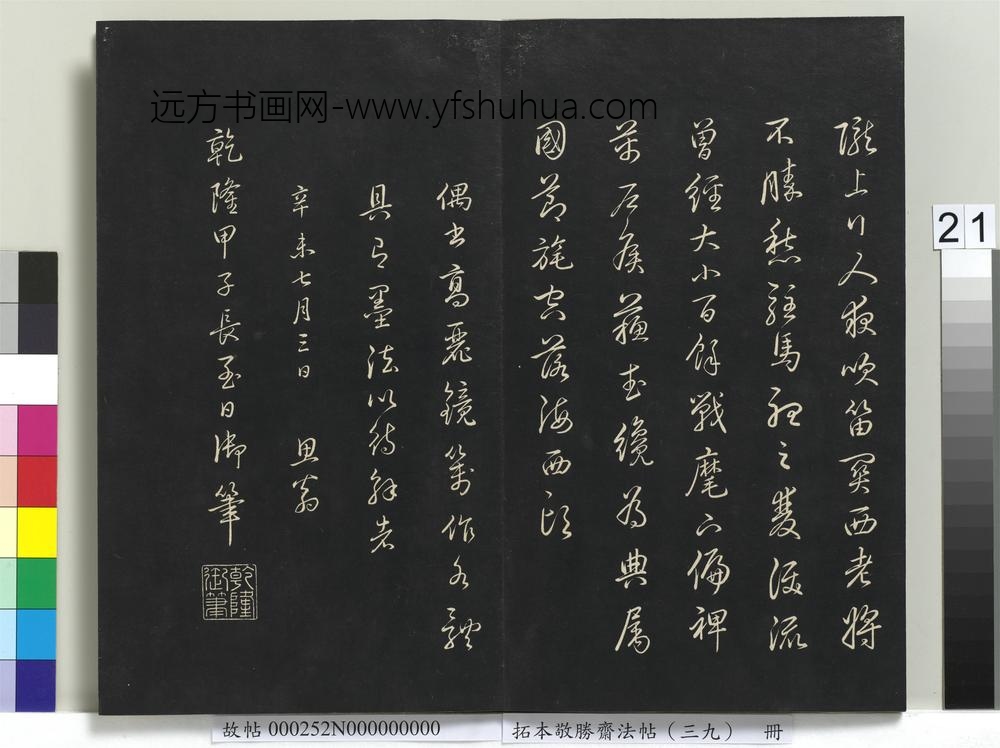 隴上行人夜吹笛關西老將
不勝愁駐馬聽之雙淚流
曾經大小百餘戰麾下偏裨
萬戶侯蘇武纔為典屬
國節旄空落海西頭
偶書高麗鏡箋作各體
具有墨法以待解者
辛未七月三日 思翁
乾隆甲子長至日御筆
乾隆御筆
远方书画网-www.yfshuhua.com
21
故帖 000252N000000000
拓本敬勝齋法帖（三九） 冊